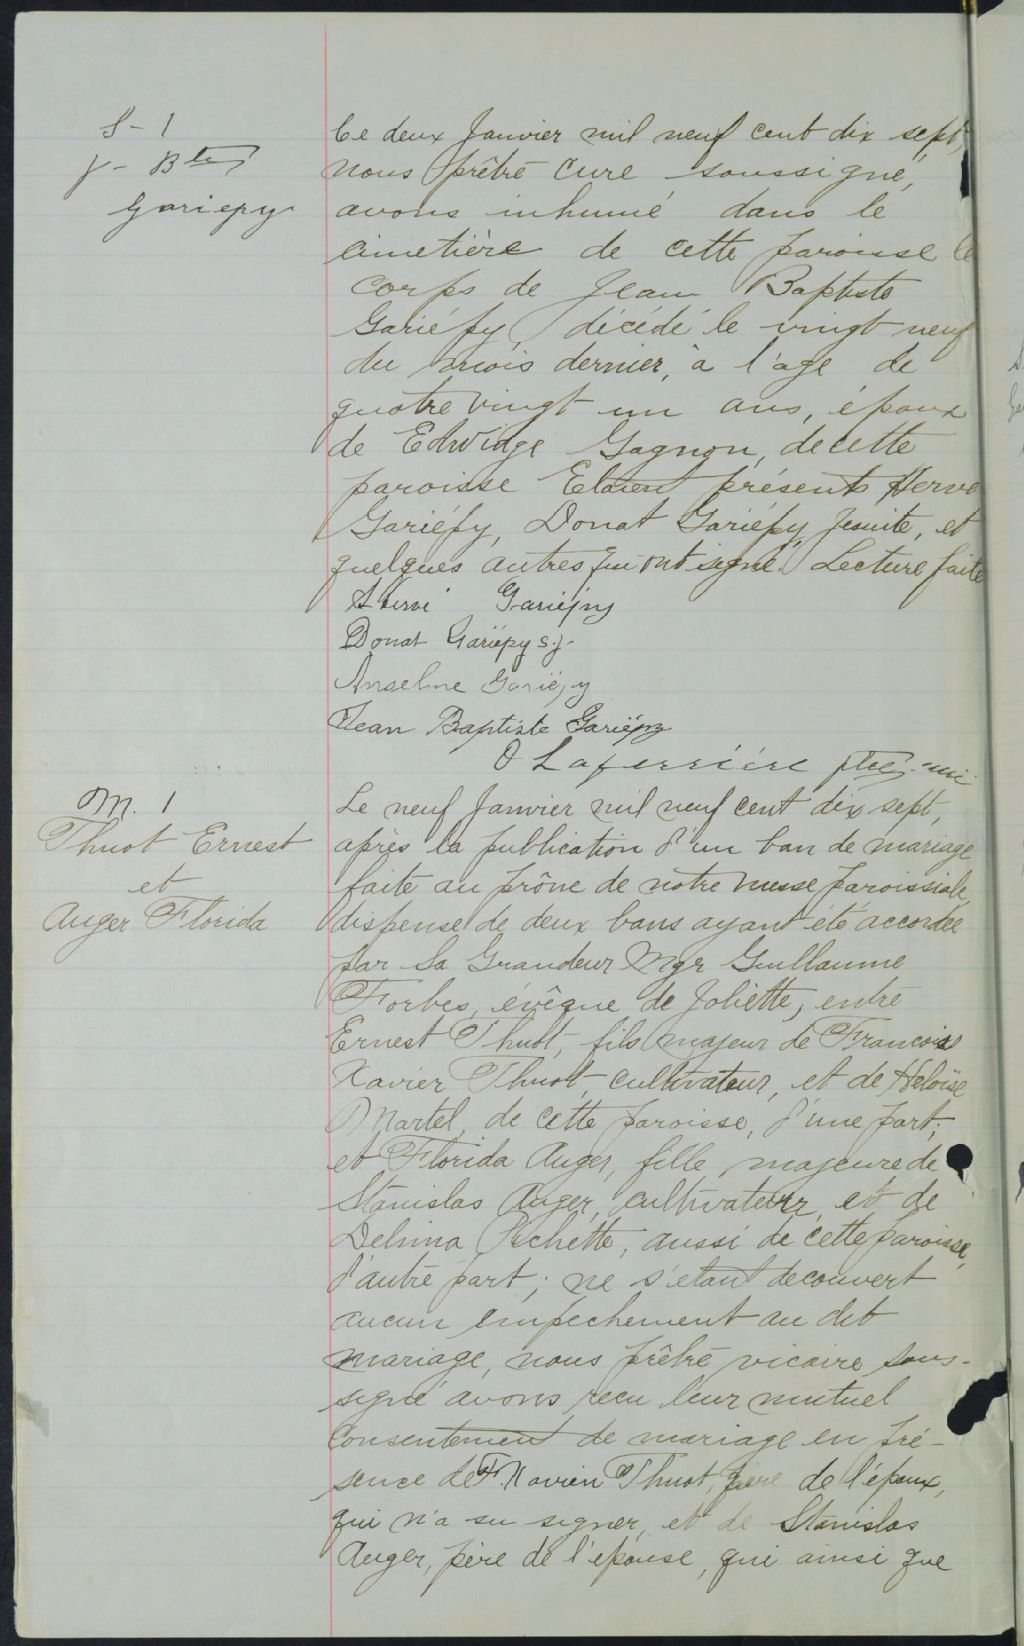 S-1
J-Bte
Gariepy
Ce deux Janvier mil neuf cent dix sept,
nous prêtre curé soussigné,
avons inhumé dans le
cimetière de cette paroisse le
corps de Jean Baptiste
Gariépy décédé le vingt neuf
du mois dernier, à l'age de
quatre vingt un ans, époux
de Edwidge Gagnon, de cette
paroisse Etaient présents Hervé
Gariépy, Donat Gariépy, Jesuite, et
quelques autres qui ont signé. Lecture faite
Hervé Gariépy
Donat Gariépy s.j.
Anselme Gariépy
Jean Baptiste Gariépy
O Laferrière ptre
M. 1
Thuot Ernest
et
Auger Florida
Le neuf Janvier mil neuf cent dix sept,
après la publication d'un ban de mariage
faite au prône de notre messe paroissiale,
dispense de deux bans ayant été accordée
par Sa Grandeur Mgr Guillaume
Forbes, évêque de Joliette, entre
Ernest Thuot, fils majeur de Francois
Xavier Thuot cultivateur, et de Héloïse
Martel, de cette paroisse, d'une part,
et Florida Auger, fille majeure de
Stanislas Auger, cultivateur, et de
Delima Pichette, aussi de cette paroisse,
d'autre part; ne s'etant decouvert
aucun empechement au dit
mariage, nous prêtre vicaire sous-
signé avons recu leur mutuel
consentement de mariage en pré-
sence de F. Xavier Thuot, père de l'époux,
qui n'a su signer, et de Stanislas
Auger, père de l'epouse, qui ainsi que